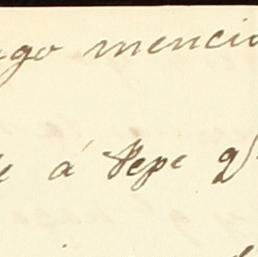 go mencio
á Pepe q